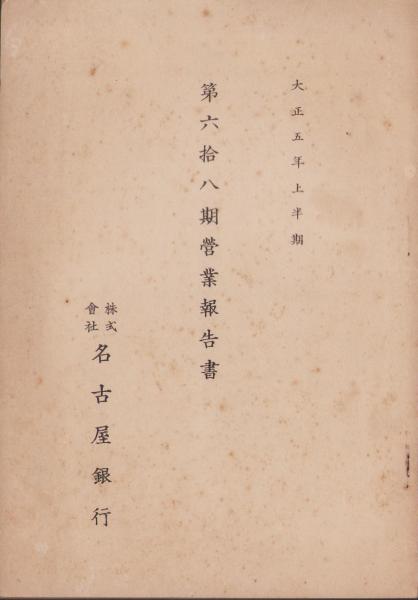 大正五年上半期
第六拾八期營業報告書
株式會社
名古屋銀行